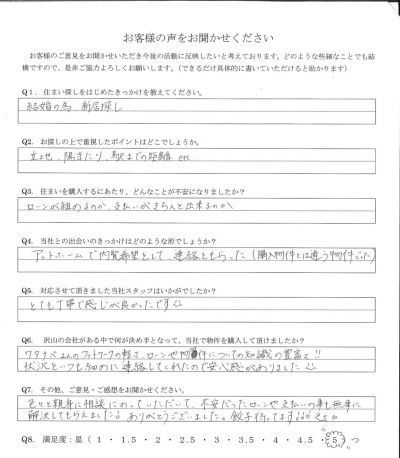 お客様の声をお聞かせください
お客様のご意見をお聞かせいただき今後の活動に反映したいと考えております。どのような些細なことでも結
構ですので、是非ご協力よろしくお願いします。（できるだけ具体的に書いていただけると助かります）
Q1. 住まい探しをはじめたきっかけを教えてください。
結婚の為、新居探し
Q2. お探しの上で重視したポイントはどこでしょうか。
立地、陽当たり、駅までの距離 etc
Q3. 住まいを購入するにあたり、どんなことが不安になりましたか？
ローンが組めるのか、支払いがきちんと出来るのか
Q4. 当社との出会いのきっかけはどのような形でしょうか？
アットホームで内覧希望をして、連絡をもらった（購入物件とは違う物件だった）
Q5. 対応させて頂きました当社スタッフはいかがでしたか？
とても丁寧で感じが良かったです
Q6. 沢山の会社がある中で何が決め手となって、当社で物件を購入して頂けましたか？
ワタナベさんのフットワークの軽さ、ローンや物件についての知識の豊富さ!!
状況をいつも細めに連絡してくれたので安心感がありました
Q7. その他、ご意見・ご感想をお聞かせください。
色々と親身に相談にのっていただいて、不安だったローンや支払いの事も無事に
解決してもらえました ありがとうございました。餃子待ってますね
Q8. 満足度：星（ 1 ・ 1.5 ・ 2 ・ 2.5 ・ 3 ・ 3.5 ・ 4 ・ 4.5 ・ 5 ）つ